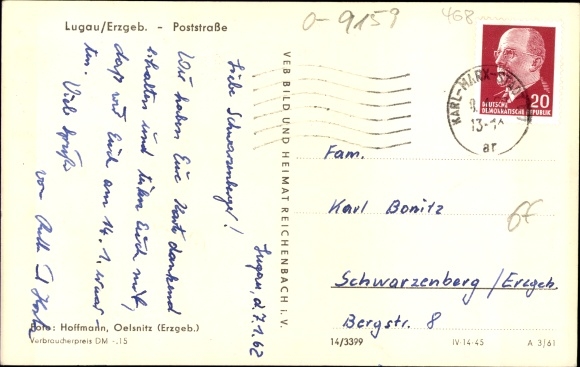 Lugau/Erzgeb. - Poststraße
0-9159
468
Lugau, d. 7.1.62
Liebe Schwarzenberger!
Wir haben Eure Karte dankend
erhalten und teilen Euch mit,
daß wir Euch am 14.1. erwar-
ten. Viele Grüße
von
Foto: Hoffmann, Oelsnitz (Erzgeb.)
Verbraucherpreis DM -.15
VEB BILD UND HEIMAT REICHENBACH i. V.
KARL-MARX-STADT
13-14
ar
DEUTSCHE
DEMOKRATISCHE REPUBLIK
20
Fam.
Karl Bonitz
6€
Schwarzenberg/Erzgeb.
Bergstr. 8
14/3399
IV-14-45
A 3/61